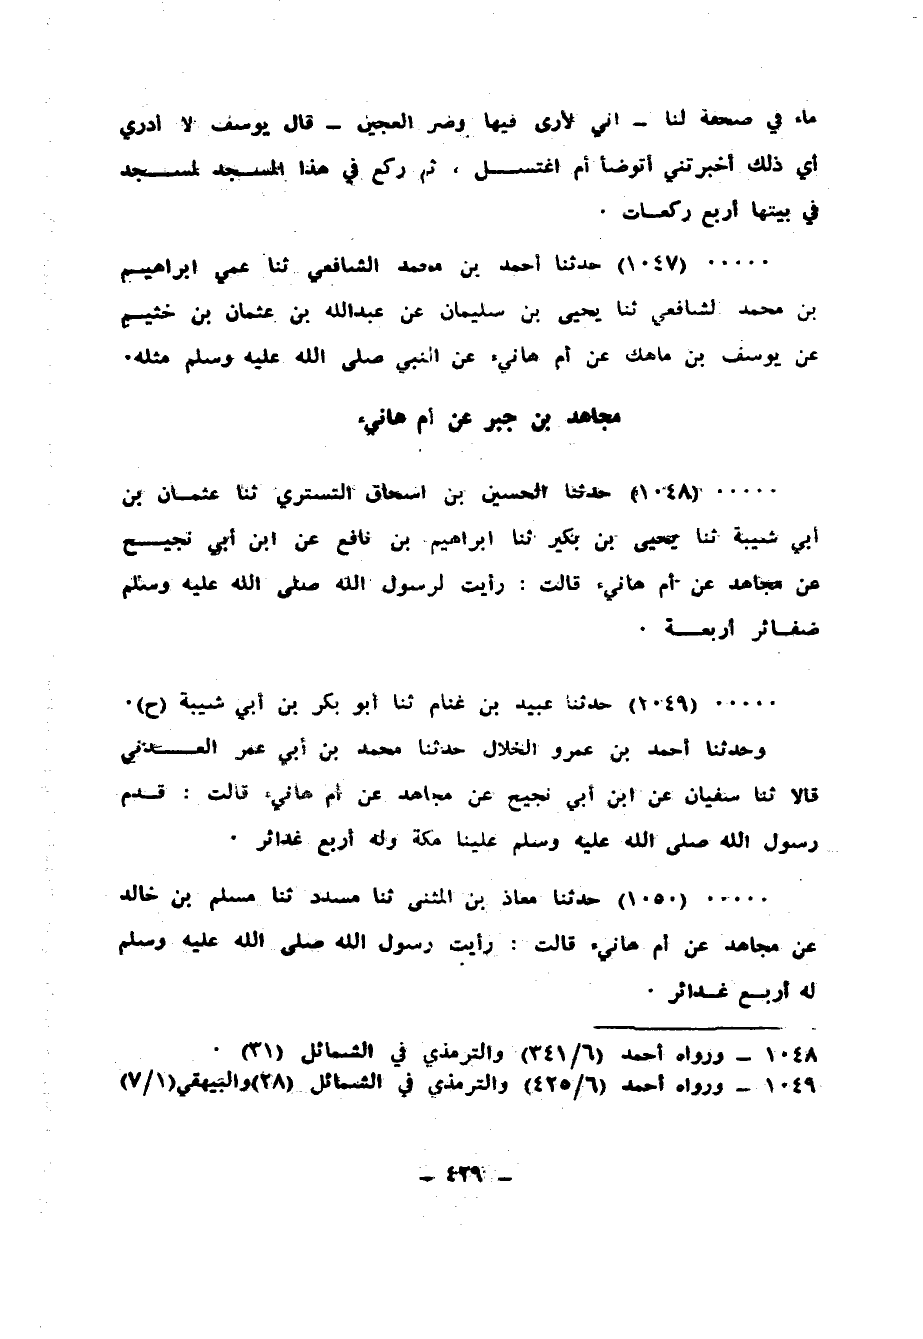 ماء في صحفة لنا ـ اني لأرى فيها وضر العجين ـ قال يوسف لا أدري
أي ذلك أخبرتني أتوضأ أم اغتسل ، ثم ركع في هذا المسجد لمسجد
في بيتها أربع ركعات ٠
٠٠٠٠٠ (١٠٤٧) حدثنا أحمد بن محمد الشافعي ثنا عمي ابراهيم
بن محمد لشافعي ثنا يحيى بن سليمان عن عبدالله بن عثمان بن خثيم
عن يوسف بن ماهك عن أم هانيء عن النبي صلى الله عليه وسلم مثله٠
مجاهد بن جبر عن أم هانيء
٠٠٠٠٠ (١٠٤٨) حدثنا الحسين بن اسحاق التستري ثنا عثمان بن
أبي شيبة ثنا يحيى بن بكير ثنا ابراهيم بن نافع عن ابن أبي نجيح
عن مجاهد عن أم هانيء قالت : رأيت لرسول الله صلى الله عليه وسلم
ضفائر أربعة ٠
٠٠٠٠٠ (١٠٤٩) حدثنا عبيد بن غنام ثنا أبو بكر بن أبي شيبة (ح)٠
وحدثنا أحمد بن عمرو الخلال حدثنا محمد بن أبي عمر العدني
قالا ثنا سفيان عن ابن أبي نجيح عن مجاهد عن أم هانيء قالت : قدم
رسول الله صلى الله عليه وسلم علينا مكة وله أربع غدائر ٠
٠٠٠٠٠ (١٠٥٠) حدثنا معاذ بن المثنى ثنا مسدد ثنا مسلم بن خالد
عن مجاهد عن أم هانيء قالت : رأيت رسول الله صلى الله عليه وسلم
له أربع غدائر ٠
١٠٤٨ ـ ورواه أحمد (٣٤١/٦) والترمذي في الشمائل (٣١) ٠
١٠٤٩ ـ ورواه أحمد (٤٢٥/٦) والترمذي في الشمائل (٢٨)والبيهقي(٧/١)
ـ ٤٢٩ ـ